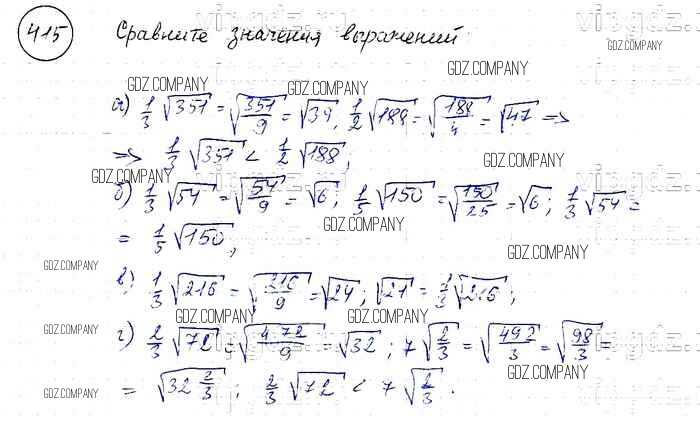 415 Сравните значения выражений
GDZ.COMPANY GDZ.COMPANY GDZ.COMPANY
а) 1/3 √351 = √(351/9) = √39, 1/2 √188 = √(188/4) = √47 =>
=> 1/3 √351 < 1/2 √188;
GDZ.COMPANY GDZ.COMPANY
б) 1/3 √54 = √(54/9) = √6; 1/5 √150 = √(150/25) = √6; 1/3 √54 =
GDZ.COMPANY
= 1/5 √150;
GDZ.COMPANY GDZ.COMPANY
в) 1/3 √216 = √(216/9) = √24; √21 = 1/3 √216;
GDZ.COMPANY GDZ.COMPANY
г) 2/3 √72 = √(4·72/9) = √32; 7 √(2/3) = √(49·2/3) = √(98/3) =
GDZ.COMPANY GDZ.COMPANY
= √(32 2/3); 2/3 √72 < 7 √(2/3).